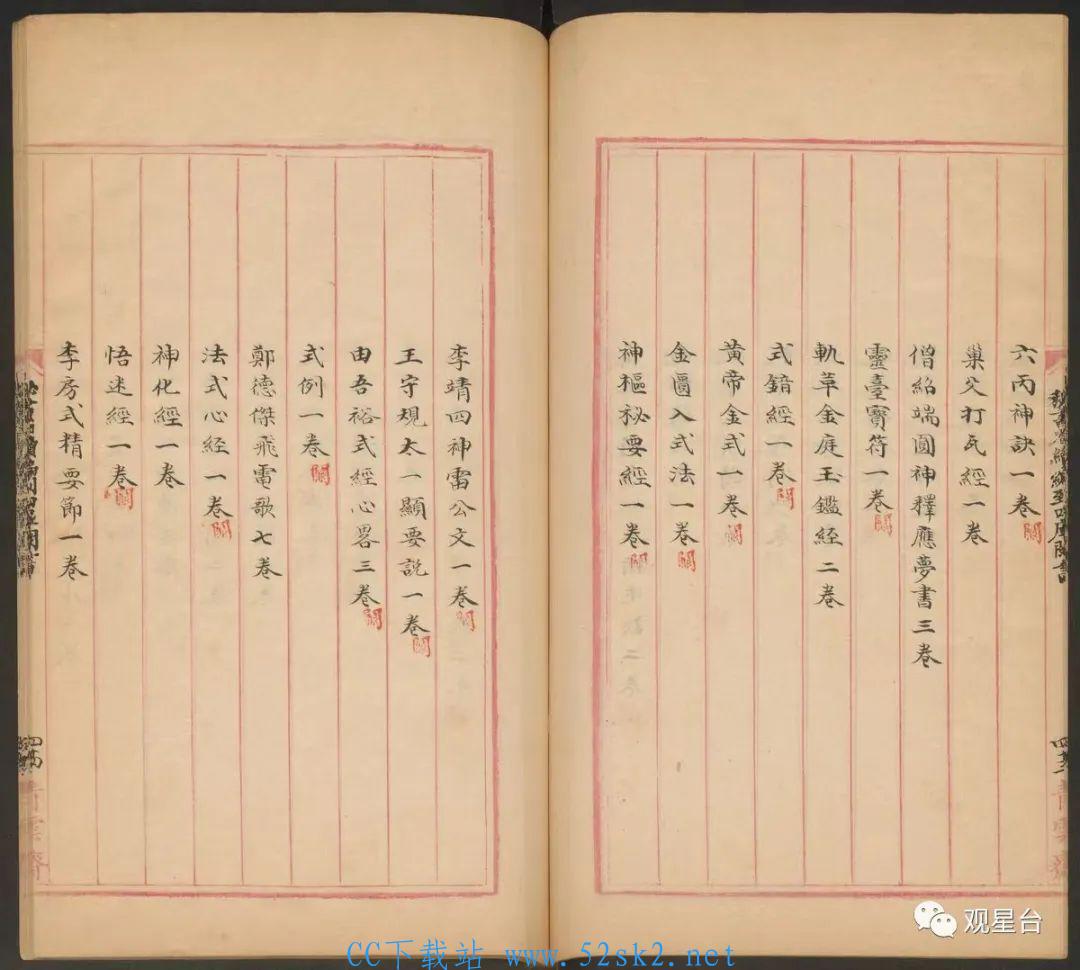 六丙神訣一卷 闕
巢父打瓦經一卷
僧紹端圓神釋應夢書三卷
靈臺寶符一卷 闕
軌革金庭玉鑑経二卷
式錯經一卷 闕
黃帝金式一卷 闕
金匱入式法一卷 闕
神樞祕要經一卷 闕
李靖四神雷公文一卷 闕
王守規太一顯要説一卷 闕
由吾裕式經心畧三卷 闕
式例一卷 闕
鄭德傑飛電歌七卷
法式心経一卷 闕
神化經一卷
悟迷經一卷 闕
李房式精要節一卷
青雲齋
观星台
CC下载站 www.52sk2.net